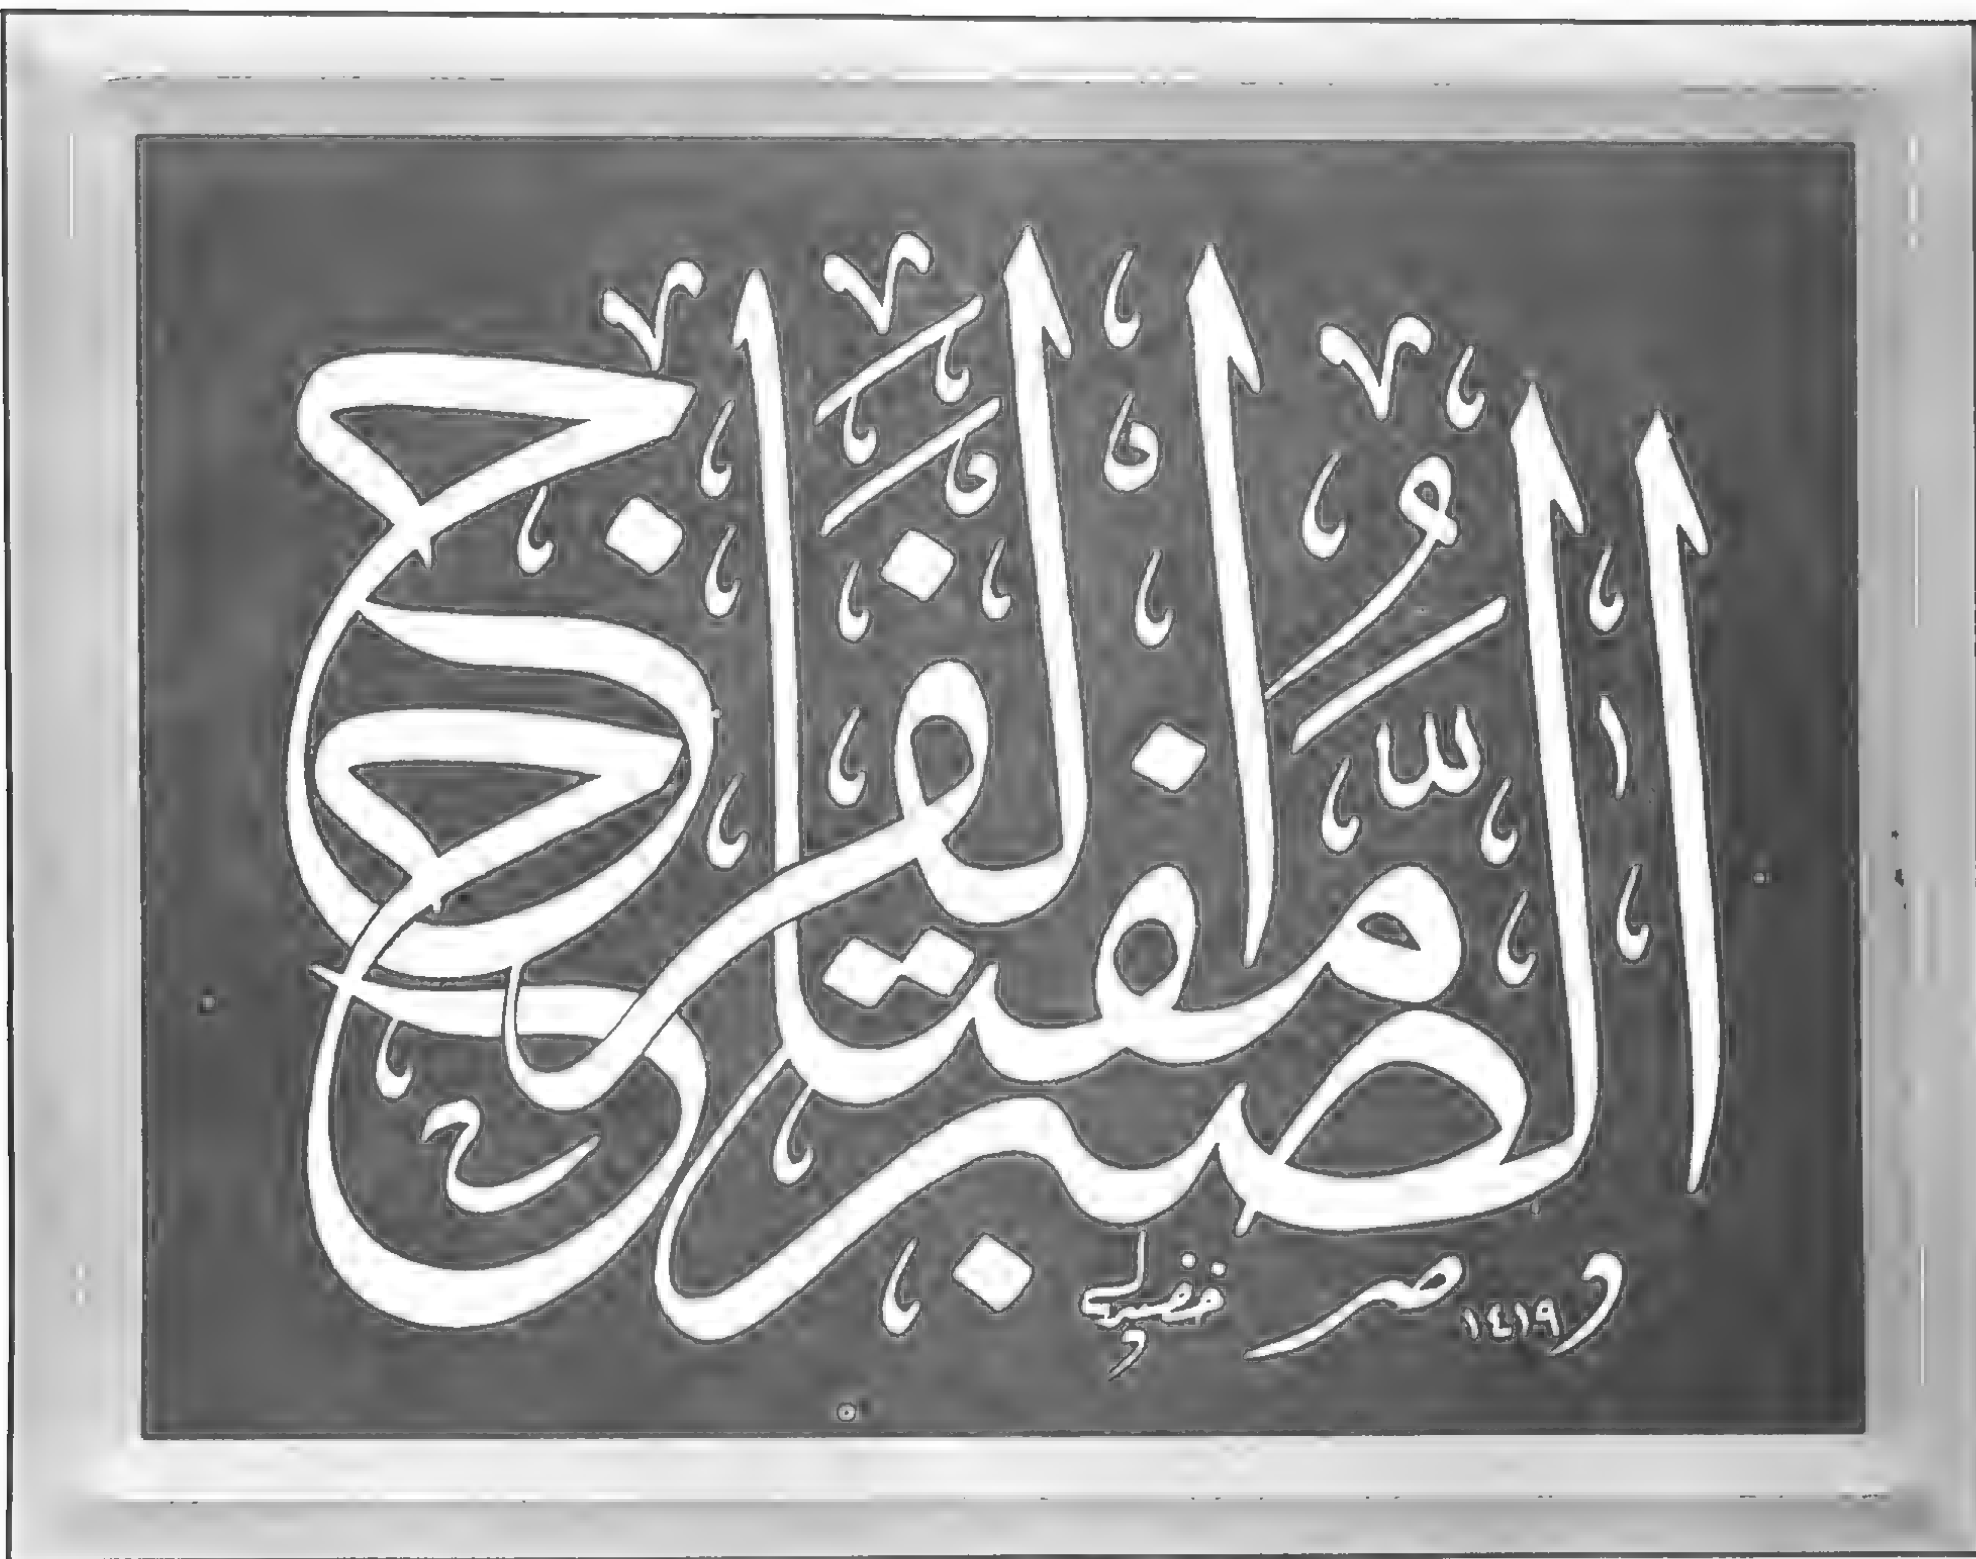 الصبر مفتاح الفرج
١٤١٩